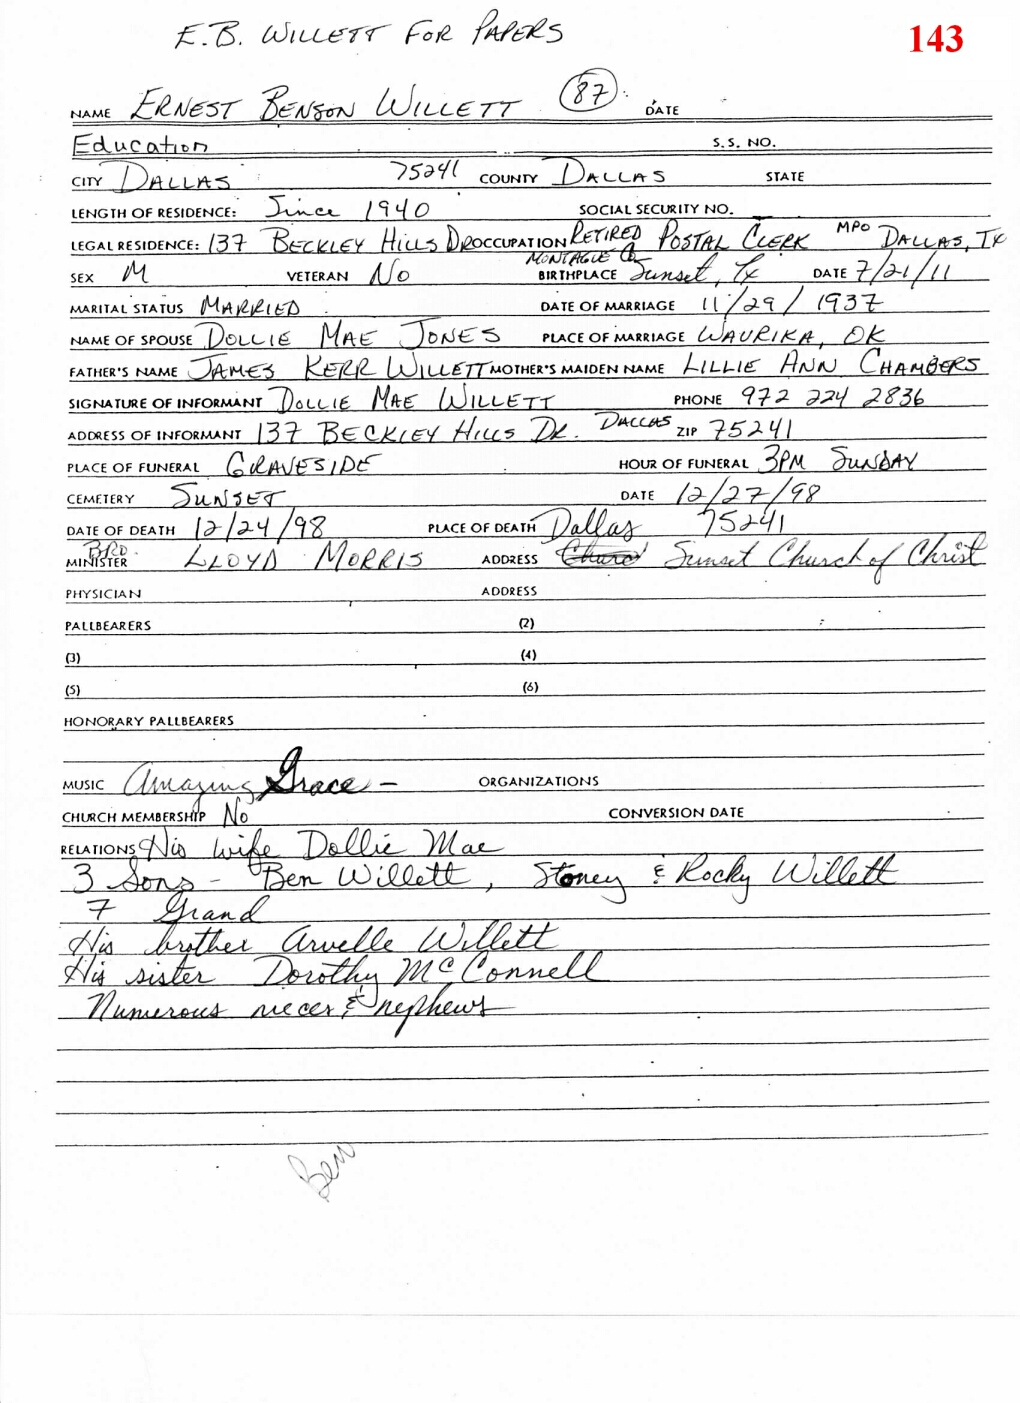 E.B. WILLETT FOR PAPERS
143
NAME ERNEST BENSON WILLETT 87 DATE
Education S.S. NO.
CITY DALLAS 75241 COUNTY DALLAS STATE
LENGTH OF RESIDENCE: Since 1940 SOCIAL SECURITY NO.
LEGAL RESIDENCE: 137 BECKLEY HILLS DR OCCUPATION RETIRED POSTAL CLERK MPO DALLAS, TX
MONTAGUE Co
SEX M VETERAN NO BIRTHPLACE Sunset, Tx DATE 7/21/11
MARITAL STATUS MARRIED DATE OF MARRIAGE 11/29/1937
NAME OF SPOUSE DOLLIE MAE JONES PLACE OF MARRIAGE WAURIKA, OK
FATHER'S NAME JAMES KERR WILLETT MOTHER'S MAIDEN NAME LILLIE ANN CHAMBERS
SIGNATURE OF INFORMANT DOLLIE MAE WILLETT PHONE 972 224 2836
ADDRESS OF INFORMANT 137 BECKLEY HILLS DR. DALLAS ZIP 75241
PLACE OF FUNERAL GRAVESIDE HOUR OF FUNERAL 3PM SUNDAY
CEMETERY SUNSET DATE 12/27/98
DATE OF DEATH 12/24/98 PLACE OF DEATH Dallas 75241
BRO.
MINISTER LLOYD MORRIS ADDRESS Sunset Church of Christ
PHYSICIAN ADDRESS
PALLBEARERS (2)
(3) (4)
(5) (6)
HONORARY PALLBEARERS
MUSIC Amazing Grace - ORGANIZATIONS
CHURCH MEMBERSHIP No CONVERSION DATE
RELATIONS His wife Dollie Mae
3 Sons - Ben Willett, Stoney & Rocky Willett
7 Grand
His brother Arvelle Willett
His sister Dorothy McConnell
Numerous neices & nephews
Ben